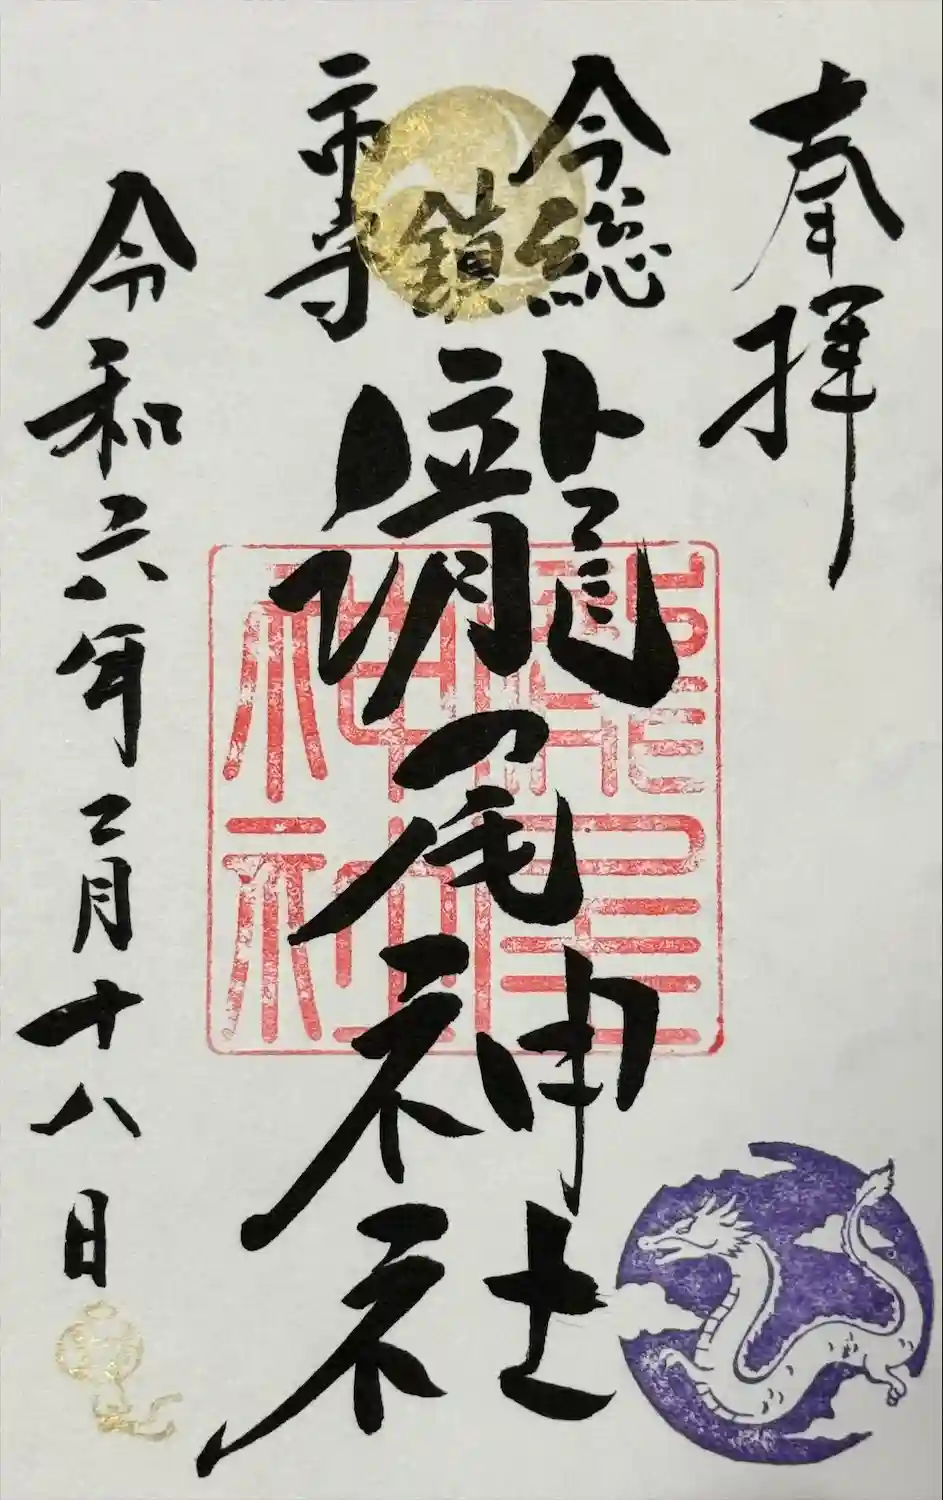 奉拝
今市
総鎮守
瀧尾神社
令和六年二月十八日
瀧尾神社